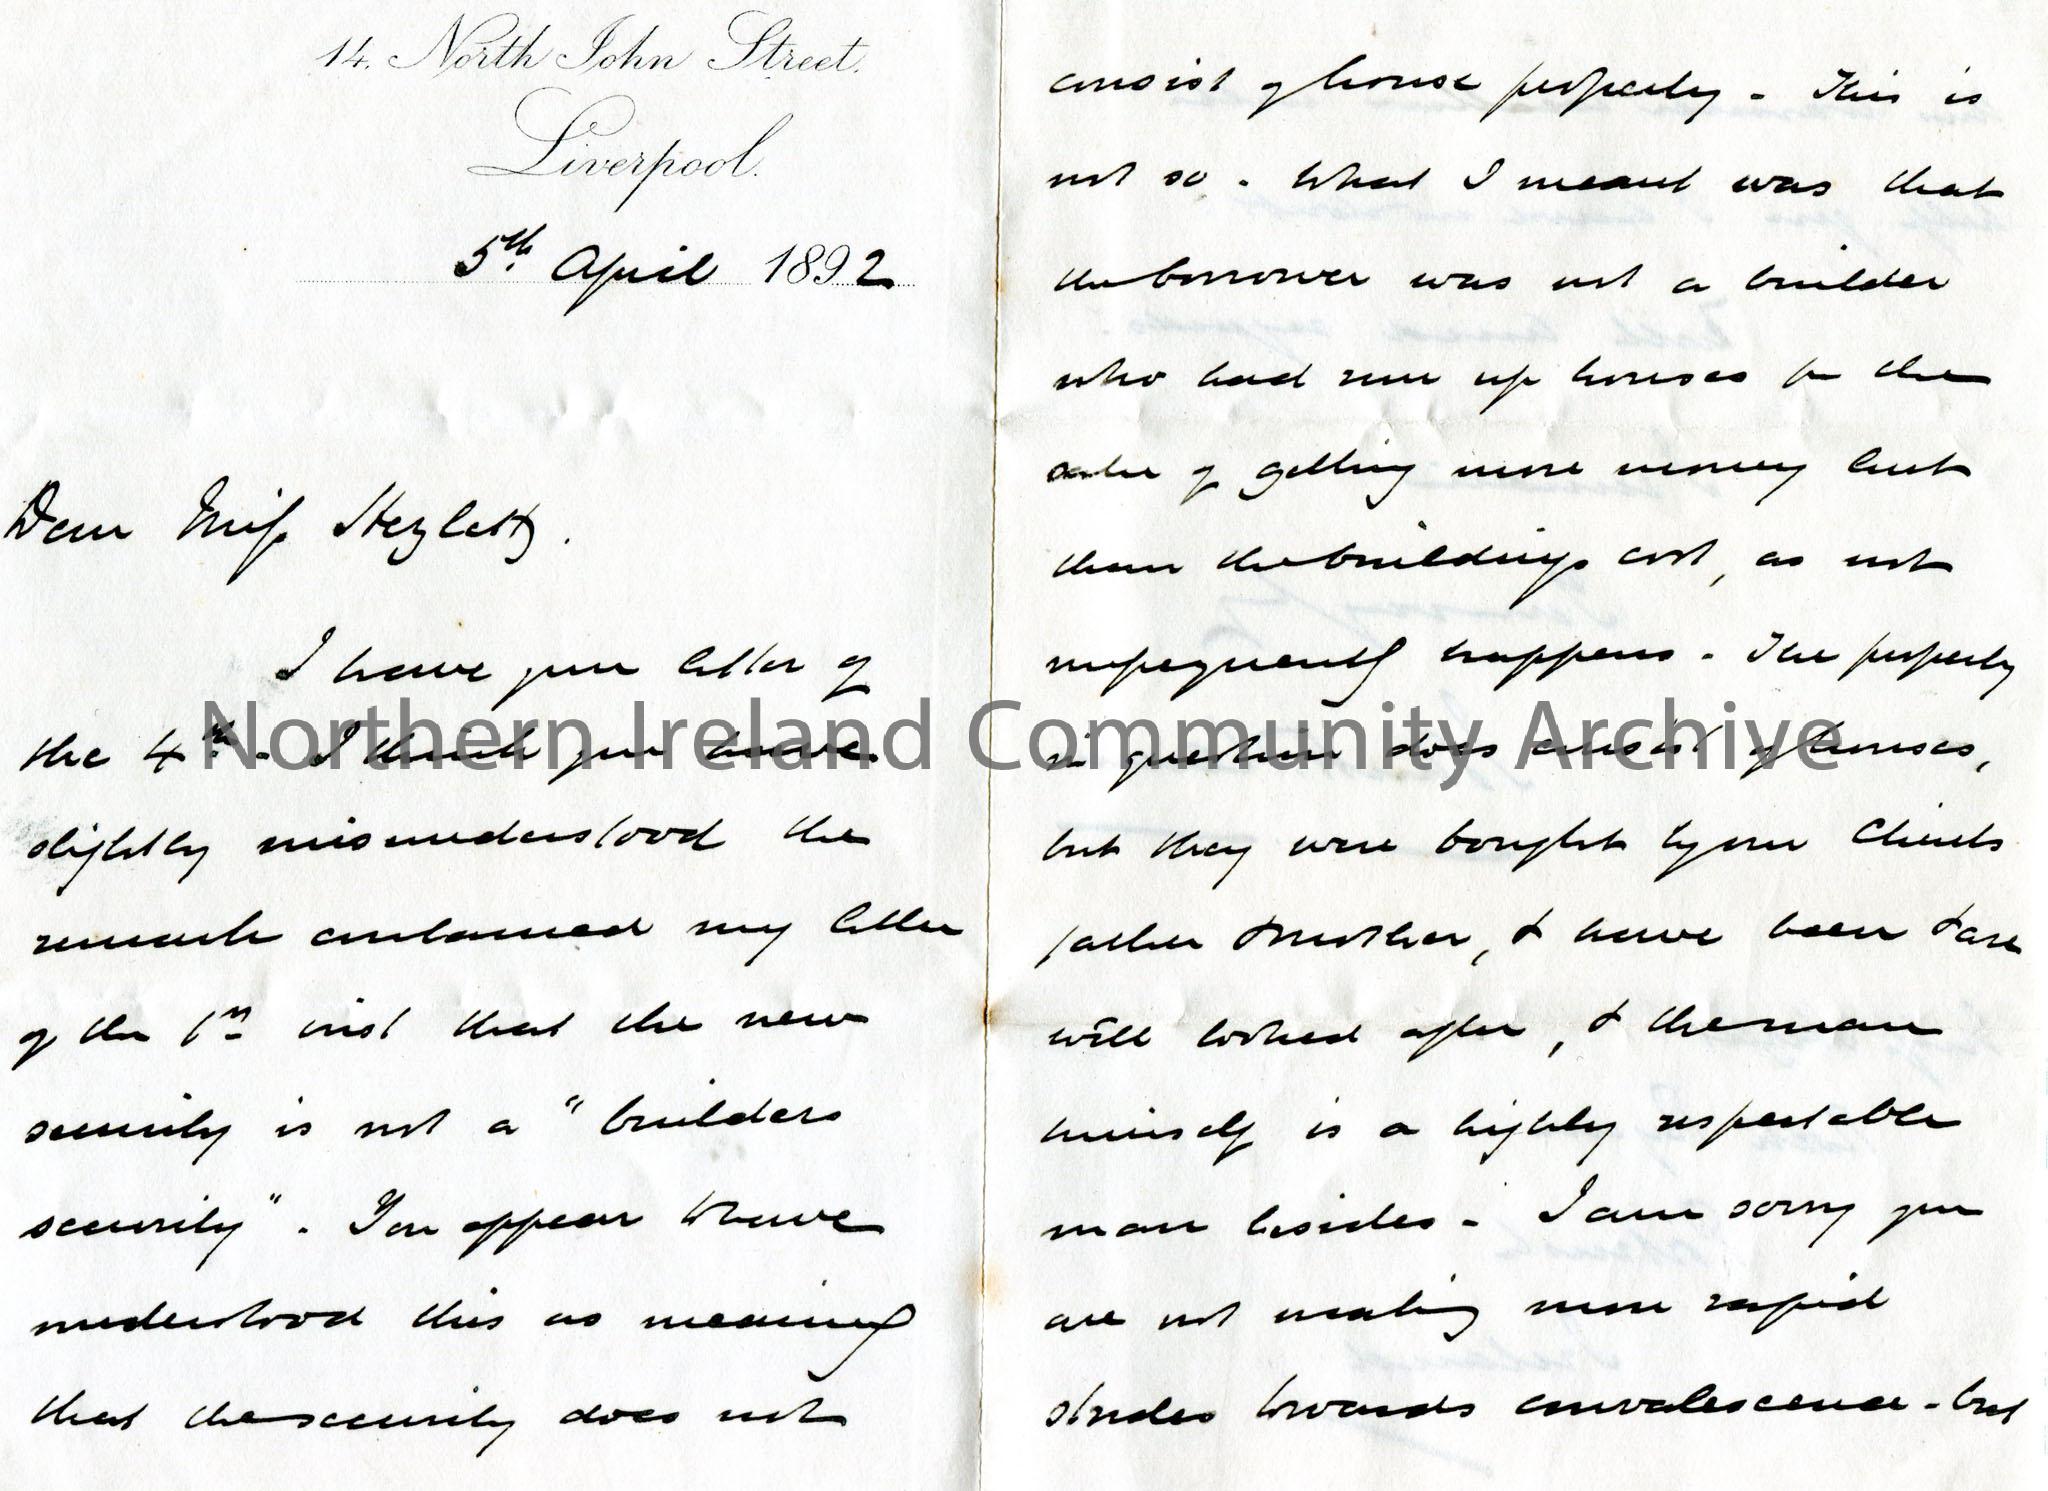 14, North John Street,
Liverpool.
5th. April 1892
Dear Miss Hezlett,
I have your letter of
the 4th. - I think you have
slightly misunderstood the
remark contained my letter
of the 1st inst that the new
security is not a "builders
security". You appear to have
understood this as meaning
that the security does not
consist of house property - This is
not so - What I meant was that
the borrower was not a builder
who had run up houses for the
sake of getting more money lent
than the buildings cost, as not
happens - The property
in question does consist of houses,
but they were bought by our Clients
father & mother, & have been & are
well looked after, & the man
himself is a highly respectable
man besides - I am sorry you
are not making more rapid
strides towards convalescence - but
Northern Ireland Community Archive